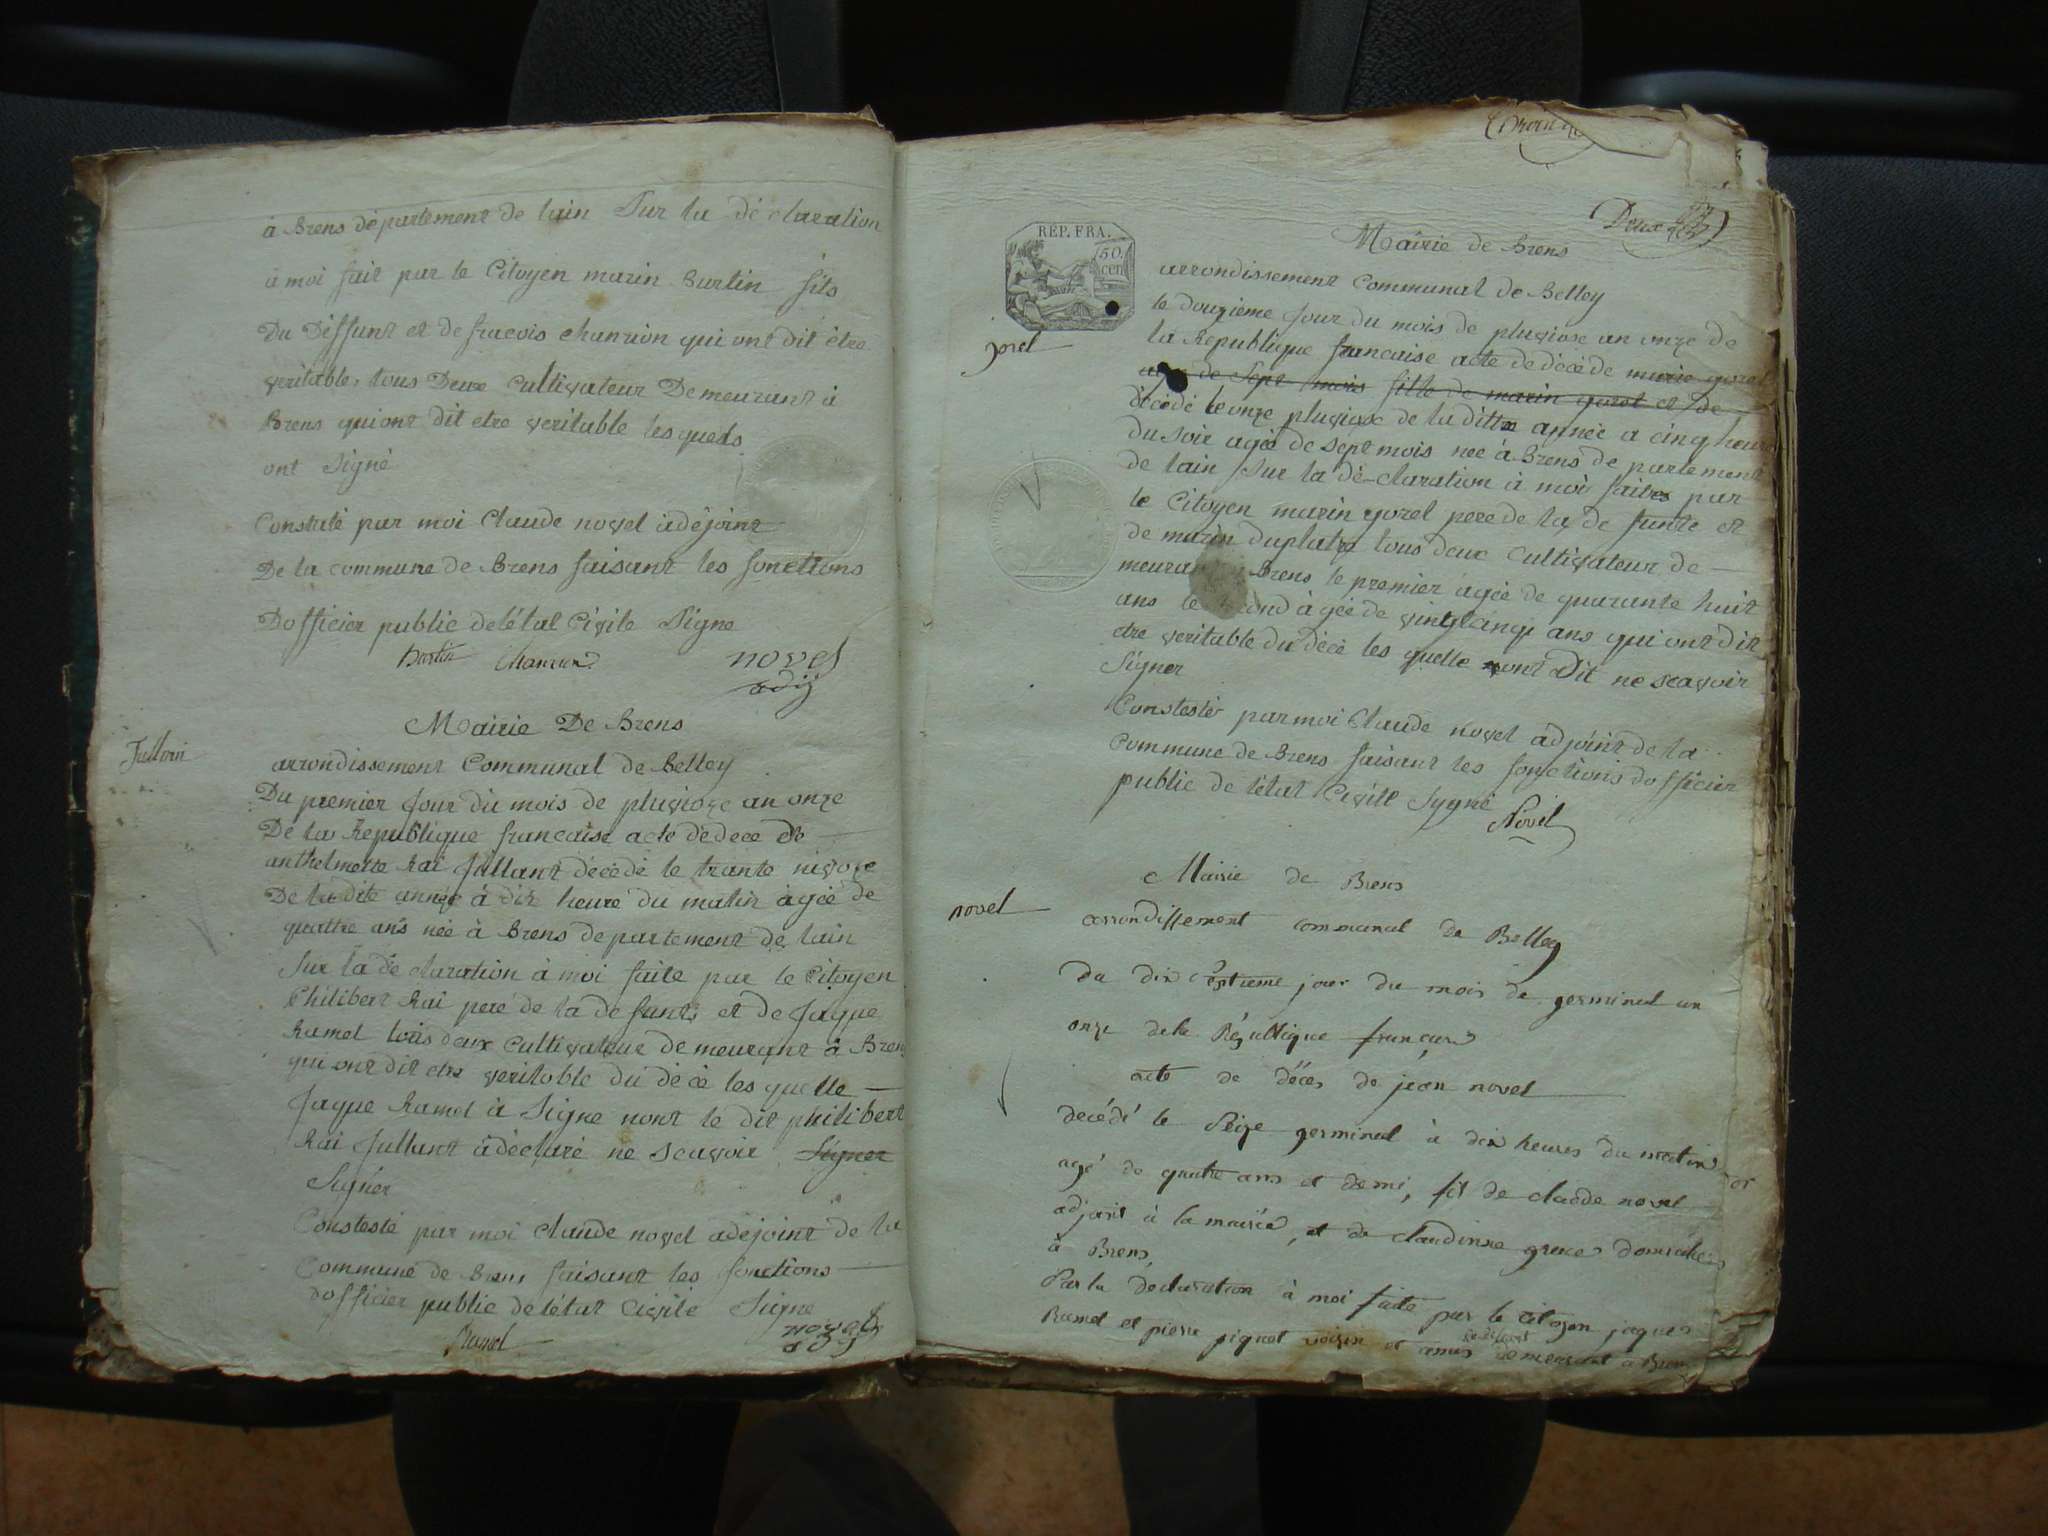 à Brens département de lain Sur la dé claration
à moi fait par le Citoyen marin Burtin fils
Du Deffunt et de fracois chanrion qui ont dit être
veritable, tous Deux Cultivateur Demeurant à
Brens qui ont dit etre veritable les quels
ont Signé
Constaté par moi Claude novel adéjoint
De la commune de Brens faisant les fonctions
Dofficier public de létat Civile Signe
Burtin Chanrion novel
adij
Mairie De Brens
arrondissement Communal de Belley
Du premier Jour du mois de pluvioze an onze
De la Republique francaise acte de dece de
anthelmette Rai Jullant décédé le trante nivoze
De la dite année à dix heure du matin agée de
quattre ans née à Brens departement de lain
Sur la dé claration à moi faite par le Citoyen
Philibert Rai pere de la defunte et de Jaque
Ramel tous deux Cultivateur demeurant à Brens
qui ont dit etre veritable du décè les quelle
Jaque Ramel à Signe nont le dit philibert
Rai Jullant à déclaré ne scavoir Signer
Signer
Constesté par moi Claude novel adéjoint de la
Commune de Brens faisant les fonctions
dofficier public de létat Civile Signe
Ramel novel
adij
REP. FRA.
50.
cen
Deux
Mairie de Brens
arrondissement Communal de Belley
gorel
le douzieme Jour du mois de pluviose an onze de
la Republique francaise acte de décè de marie gorel
de Sept mois fille de marin gorel et de
décédé le onze pluviose de la ditte année a cinq heure
du soir agée de sept mois née à Brens de partement
de lain Sur la dé-claration à moi faite par
le Citoyen marin gorel pere de la de funte et
de marin duplatre tous deux Cultivateur de
meurant Brens le premier agée de quarante huit
ans le second àgée de vingtcinq ans qui ont dit
etre veritable du décè les quelle ont dit ne scavoir
Signer
Constesté par moi Claude novel adjoint de la
Commune de Brens faisant les fonctions dofficier
public de létat Civile Sygné
Novel
Mairie de Brens
novel
arrondissement communal de Belley
du dix septieme jour du mois de germinal an
onze de la République francaise
acte de décés de jean novel
decédé le Seize germinal à dix heures du matin
agé de quatre ans et demi, fils de claude novel
adjoint à la mairie, et de claudinne domiciliés
à Brens,
Par la declaration à moi faite par le citoyen jaques
Ramel et pierre pignet voisin et amis demeurant à Brens